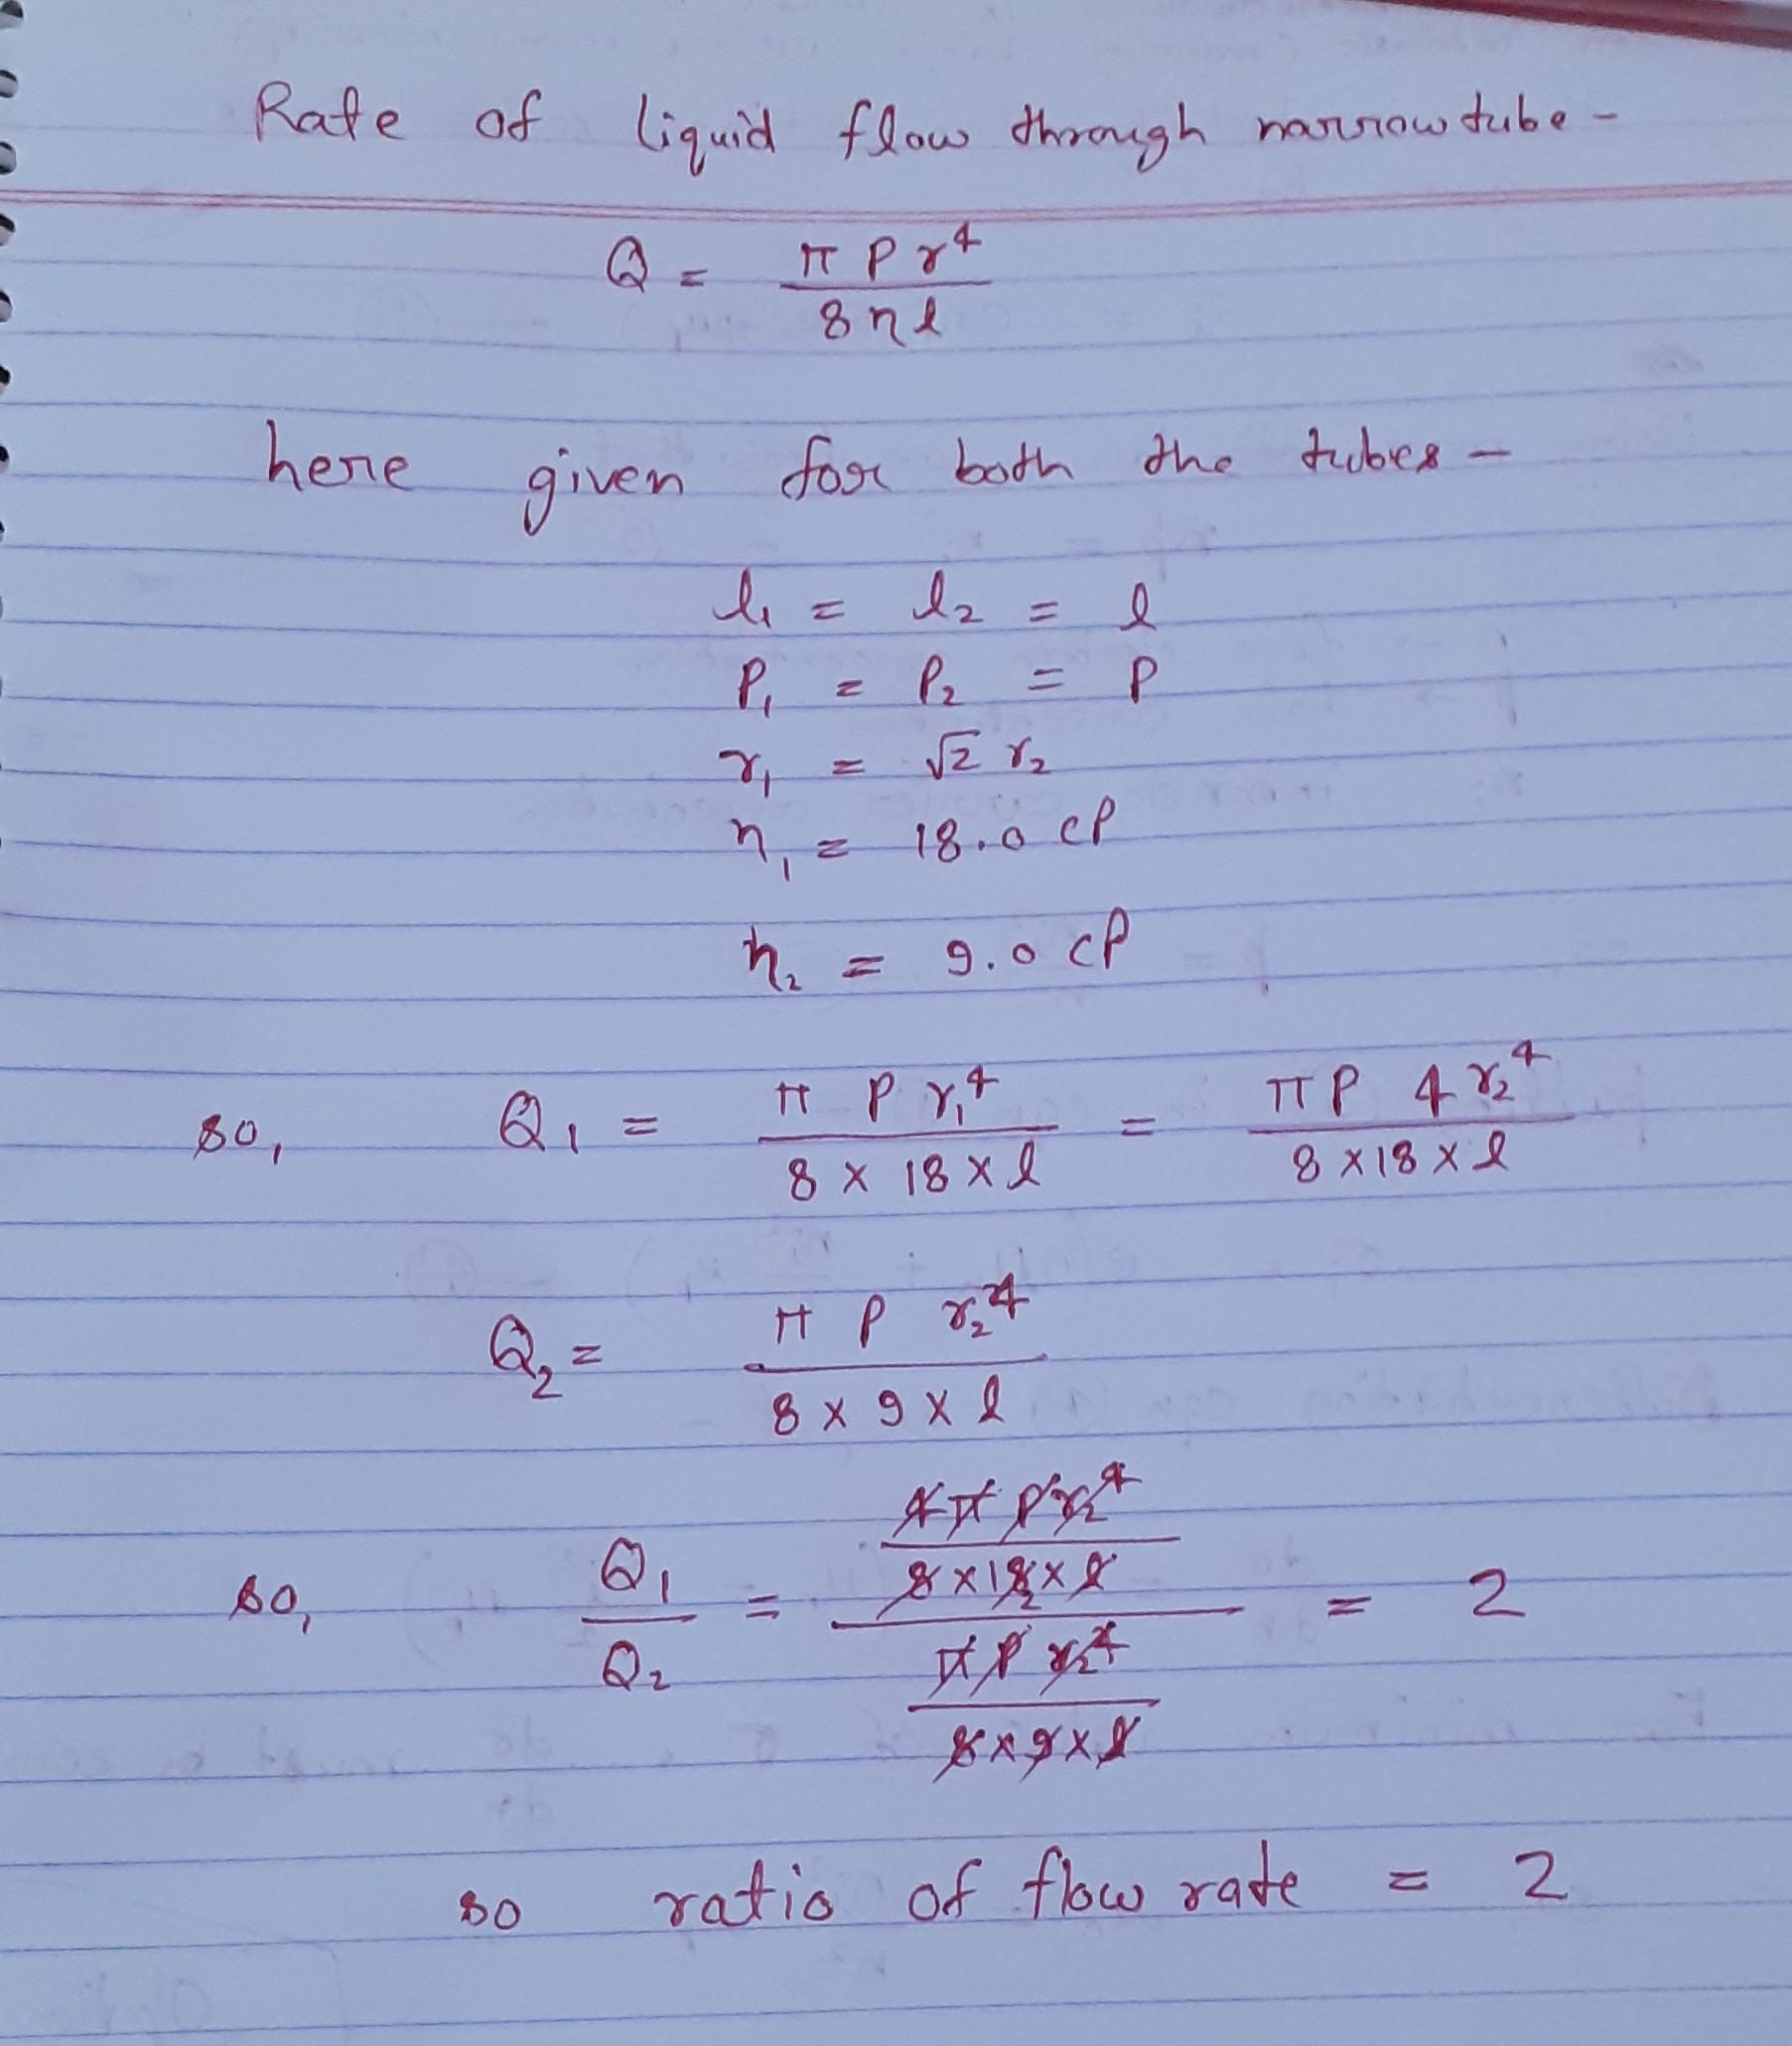 Rate of liquid flow through narrow tube -
Q = π P r⁴ / 8 η l
here given for both the tubes -
l₁ = l₂ = l
P₁ = P₂ = P
r₁ = √2 r₂
η₁ = 18.0 cP
η₂ = 9.0 cP
so, Q₁ = π P r₁⁴ / 8 × 18 × l = π P 4 r₂⁴ / 8 × 18 × l
Q₂ = π P r₂⁴ / 8 × 9 × l
so, Q₁ / Q₂ = (4 π P r₂⁴ / 8 × 18 × l) / (π P r₂⁴ / 8 × 9 × l) = 2
so ratio of flow rate = 2